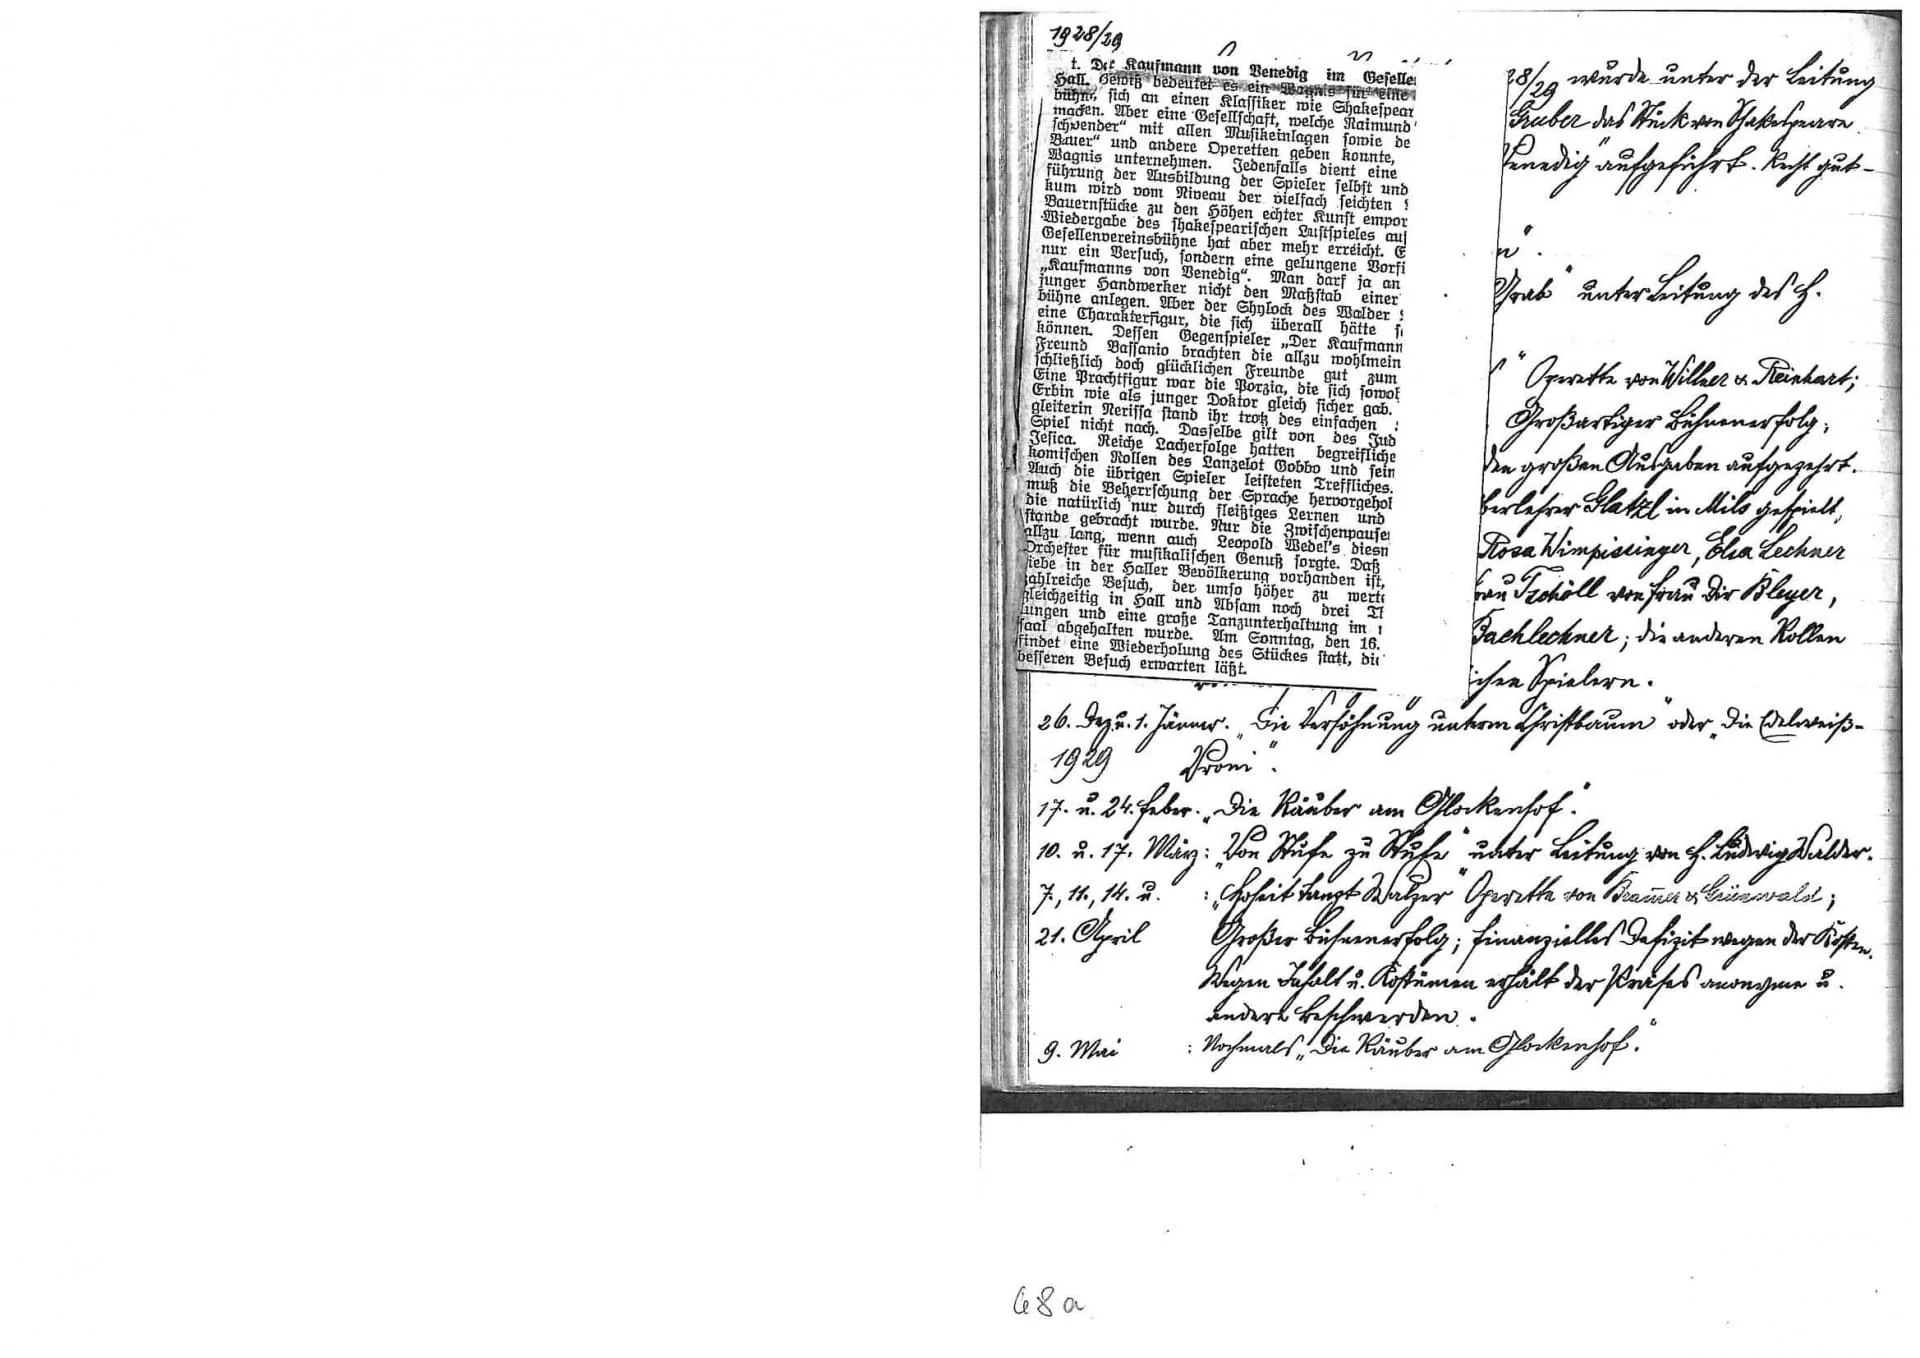 1928/29
t. Der Kaufmann von Venedig im Geselle
Hall. Gewiß bedeutet es ein Wagnis für eine
bühne, sich an einen Klassiker wie Shakespear
machen. Aber eine Gesellschaft, welche Raimund
schwender“ mit allen Musikeinlagen sowie de
Bauer“ und andere Operetten geben konnte,
Wagnis unternehmen. Jedenfalls dient eine
führung der Ausbildung der Spieler selbst und
kum wird vom Niveau der vielfach seichten
Bauernstücke zu den Höhen echter Kunst empor
Wiedergabe des shakespearischen Lustspieles auf
Gesellenvereinsbühne hat aber mehr erreicht. E
nur ein Versuch, sondern eine gelungene Vorfü
„Kaufmanns von Venedig“. Man darf ja an
junger Handwerker nicht den Maßstab einer
bühne anlegen. Aber der Shylock des Walder
eine Charakterfigur, die sich überall hätte s
können. Dessen Gegenspieler „Der Kaufmann
Freund Bassanio brachten die allzu wohlmein
schließlich doch glücklichen Freunde gut zum
Eine Prachtfigur war die Porzia, die sich sowoh
Erbin wie als junger Doktor gleich sicher gab.
gleiterin Nerissa stand ihr trotz des einfachen
Spiel nicht nach. Dasselbe gilt von des Jud
Jesica. Reiche Lacherfolge hatten begreifliche
komischen Rollen des Lanzelot Gobbo und sein
Auch die übrigen Spieler leisteten Treffliches.
muß die Beherrschung der Sprache hervorgehol
die natürlich nur durch fleißiges Lernen und
stande gebracht wurde. Nur die Zwischenpause
allzu lang, wenn auch Leopold Wedel's diesn
Orchester für musikalischen Genuß sorgte. Daß
liebe in der Haller Bevölkerung vorhanden ist,
zahlreiche Besuch, der umso höher zu werte
gleichzeitig in Hall und Absam noch drei Th
ungen und eine große Tanzunterhaltung im
saal abgehalten wurde. Am Sonntag, den 16.
findet eine Wiederholung des Stückes statt, die
besseren Besuch erwarten läßt.
28/29 wurde unter der Leitung
Gruber das Stück von Shakespeare
Venedig“ aufgeführt. Recht gut-
n“.
Grab“ unter Leitung des H.
“ Operette von Willner & Reinhart;
Großartiger Bühnenerfolg,
den großen Ausgaben aufgezehrt.
berlehrer Glatzl in Mils gespielt,
Rosa Wimpissinger, Elsa Lechner
rau Tschöll von Frau Dir Bleyer,
Bachlechner; die anderen Rollen
ichen Spielern.
26. Dez. u. 1. Jänner. „Die Versöhnung unterm Christbaum“ oder „Die Edelweiß-
1929 Vroni“.
17. u. 24. Feber. „Die Räuber am Glockenhof“.
10. u. 17. März: „Von Stufe zu Stufe“ unter Leitung von H. Ludwig Walder.
7., 11., 14. u. : „Hoheit tanzt Walzer“ Operette von Bram̄er & Grünwald;
21. April Großer Bühnenerfolg; finanzielles Defizit wegen der Kosten.
Wegen Inhalt u. Kostümen erhält der Präses anonyme u.
andere Beschwerden.
9. Mai : Nochmals „Die Räuber am Glockenhof“.
68a